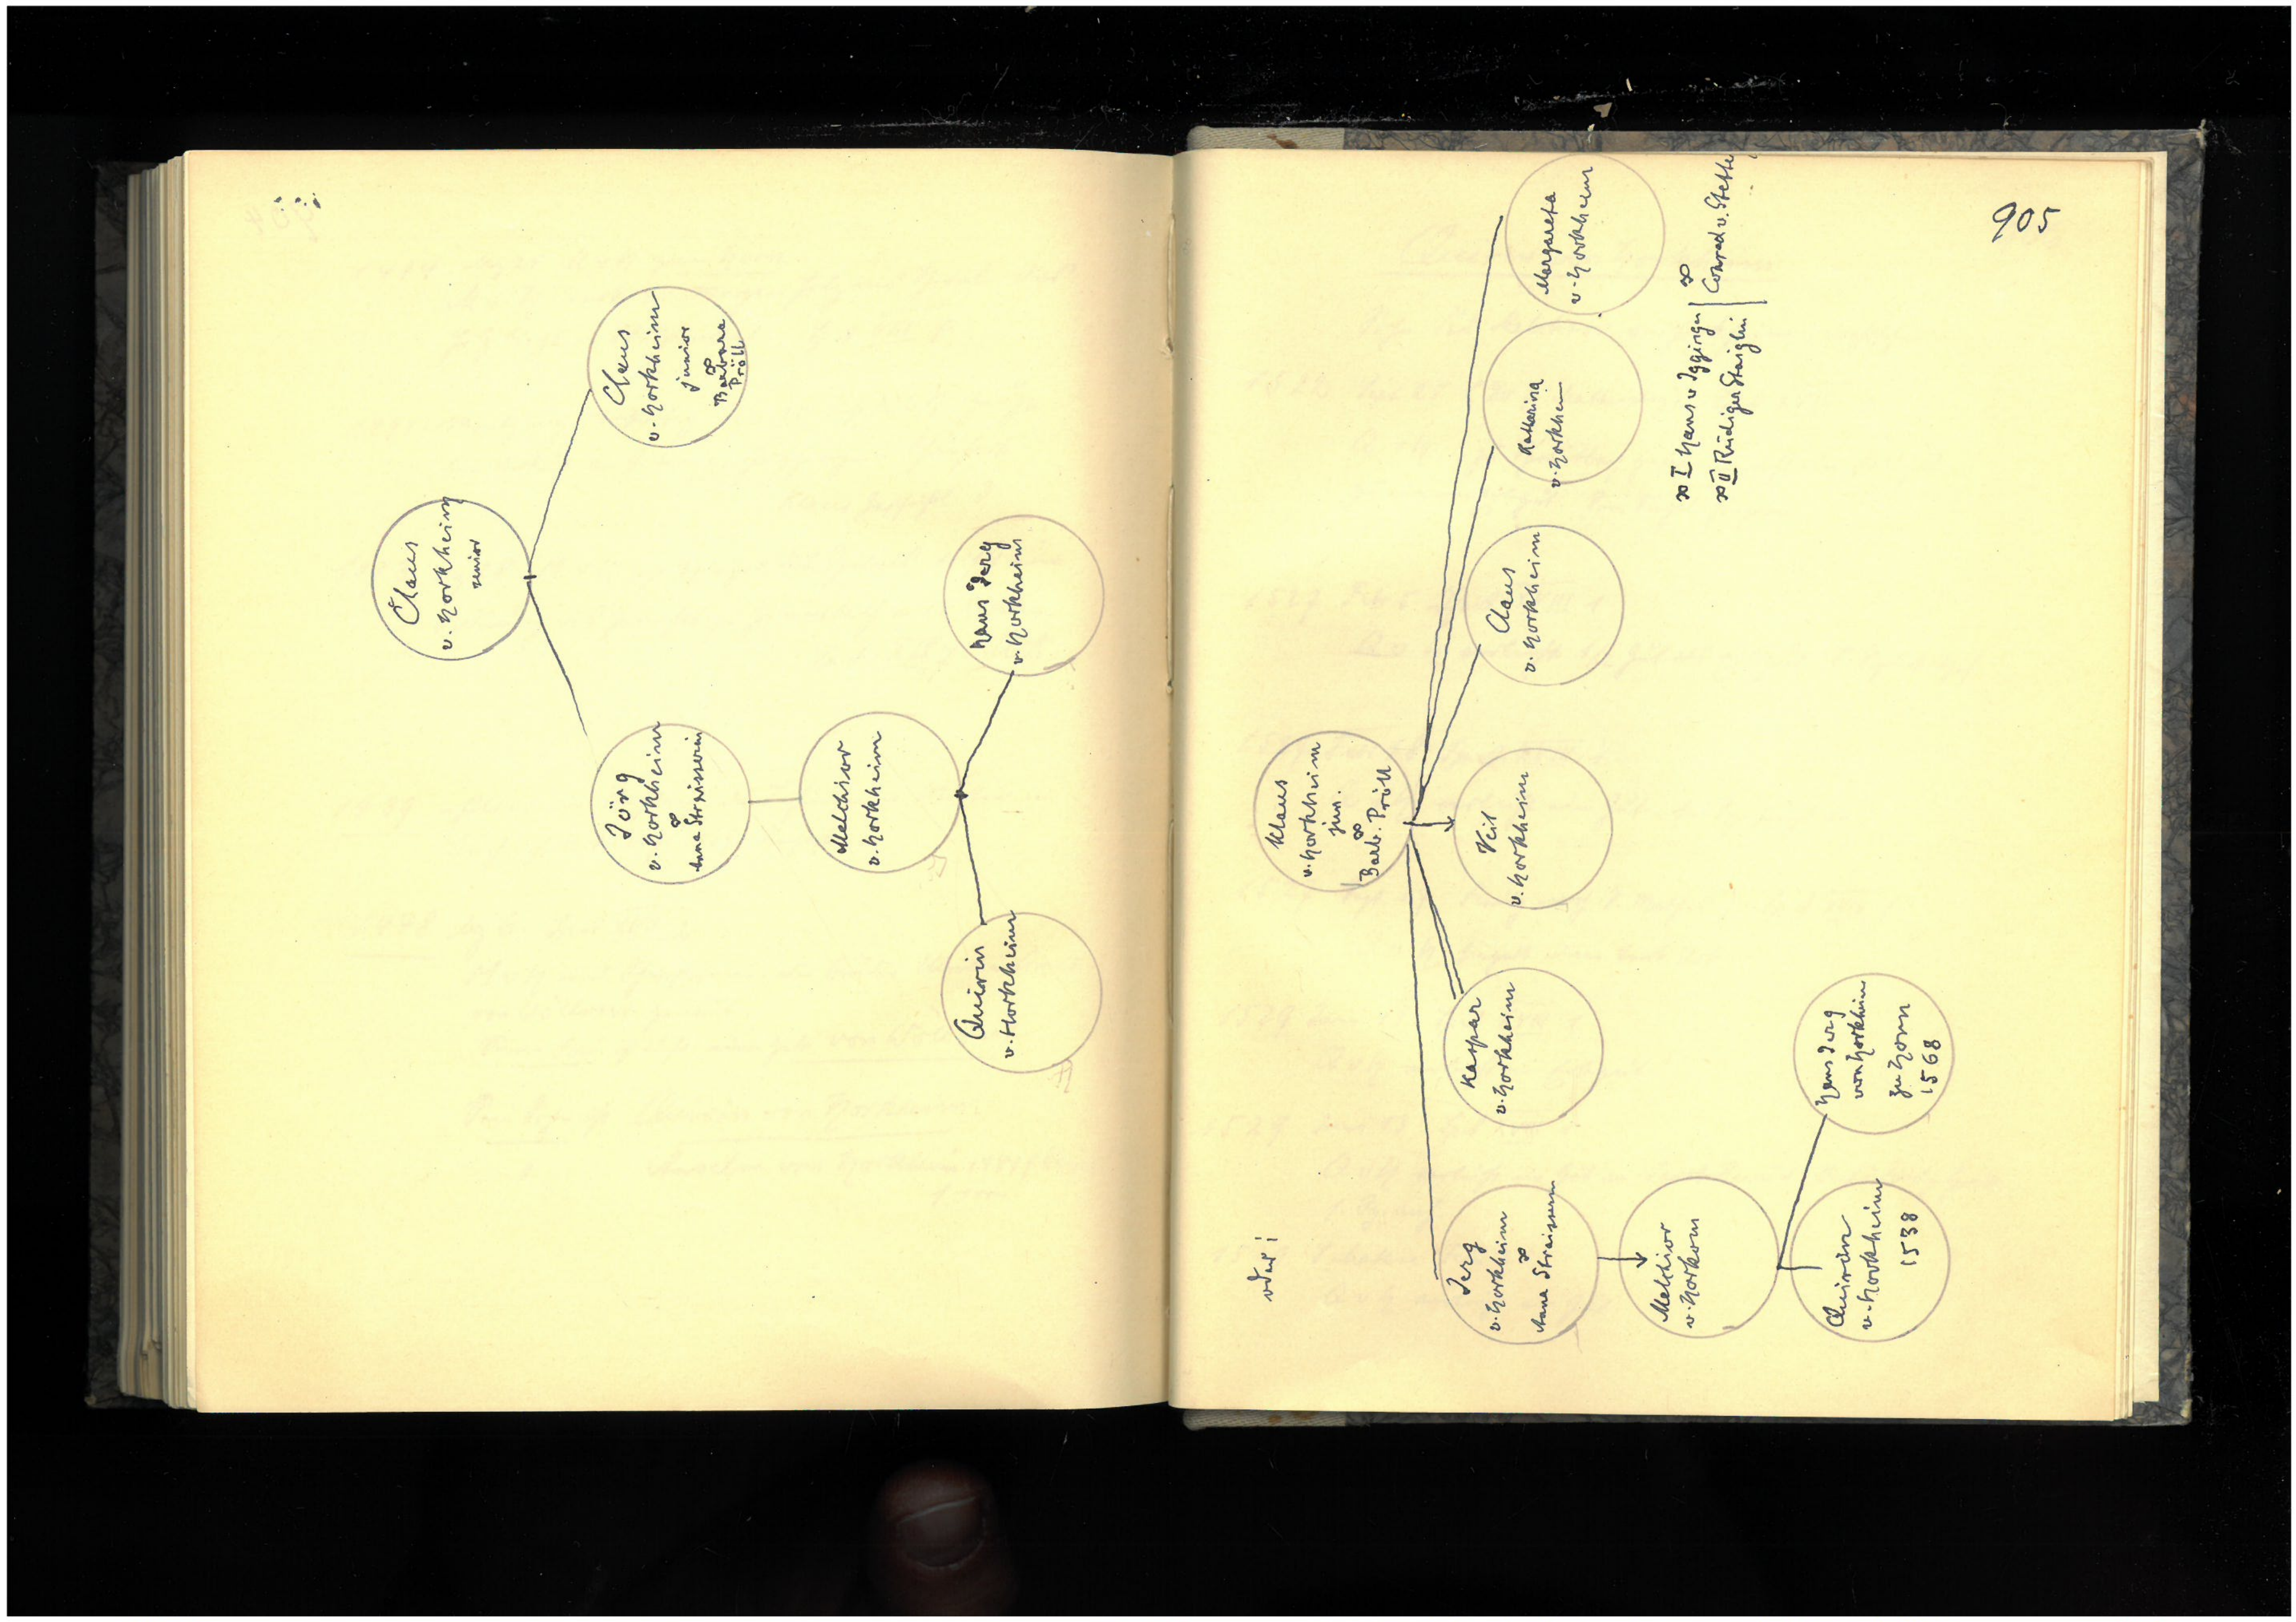 Claus
v. Horkheim
senior
Claus
v. Horkheim
junior
∞
Barbara
Pröll
Jörg
v. Horkheim
∞
Anna Streisserin
Melchior
v. Horkheim
Hans Jerg
v. Horkheim
Quirin
v. Horkheim
905
oder:
Klaus
v. Horkheim
jun.
∞
Barb. Pröll
Jerg
v. Horkheim
∞
Anna Streisserin
Kaspar
v. Horkheim
Veit
v. Horkheim
Claus
v. Horkheim
Katharina
v. Horkheim
Margareta
v. Horkheim
∞ I Hans v Iggingen
∞ II Rüdiger Staiglin
∞
Conrad v. Stett
Melchior
v. Horkom
Quirin
v. Horkheim
1538
Hans Jerg
von Horkheim
zu Horn
1568